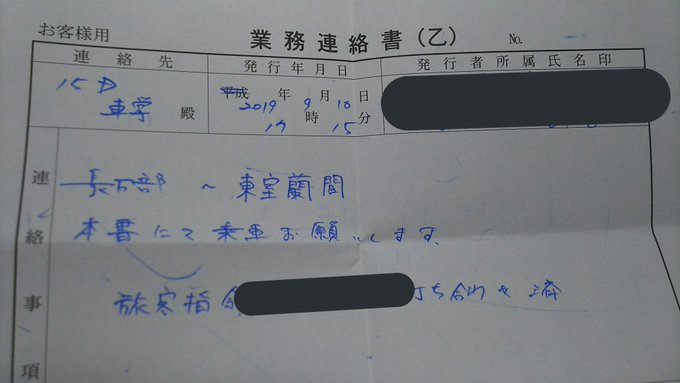 お客様用
業務連絡書(乙) No.
連絡先 発行年月日 発行者所属氏名印
15D
車掌 殿
平成 2019年 9月 10日
17時 15分
連絡事項
長万部 ~ 東室蘭間
本書にて乗車お願いします。
旅客指令
打ち合わせ済